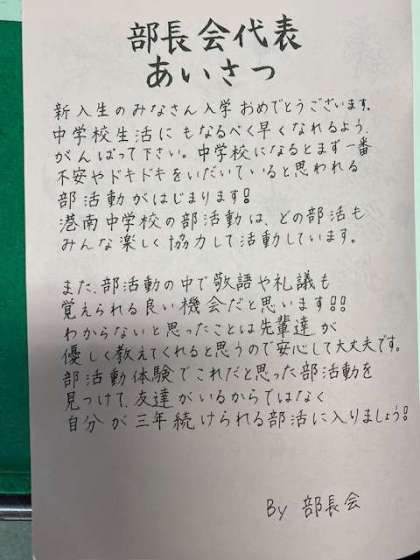 部長会代表
あいさつ
新入生のみなさん入学おめでとうございます。
中学校生活にもなるべく早くなれるよう、
がんばって下さい。中学校になるとまず一番
不安やドキドキをいだいていると思われる
部活動がはじまります!
港南中学校の部活動は、どの部活も
みんな楽しく協力して活動しています。
また、部活動の中で敬語や礼議も
覚えられる良い機会だと思います!!
わからないと思ったことは先輩達が
優しく教えてくれると思うので安心して大丈夫です。
部活動体験でこれだと思った部活動を
見つけて、友達がいるからではなく
自分が三年続けられる部活に入りましょう!
By 部長会